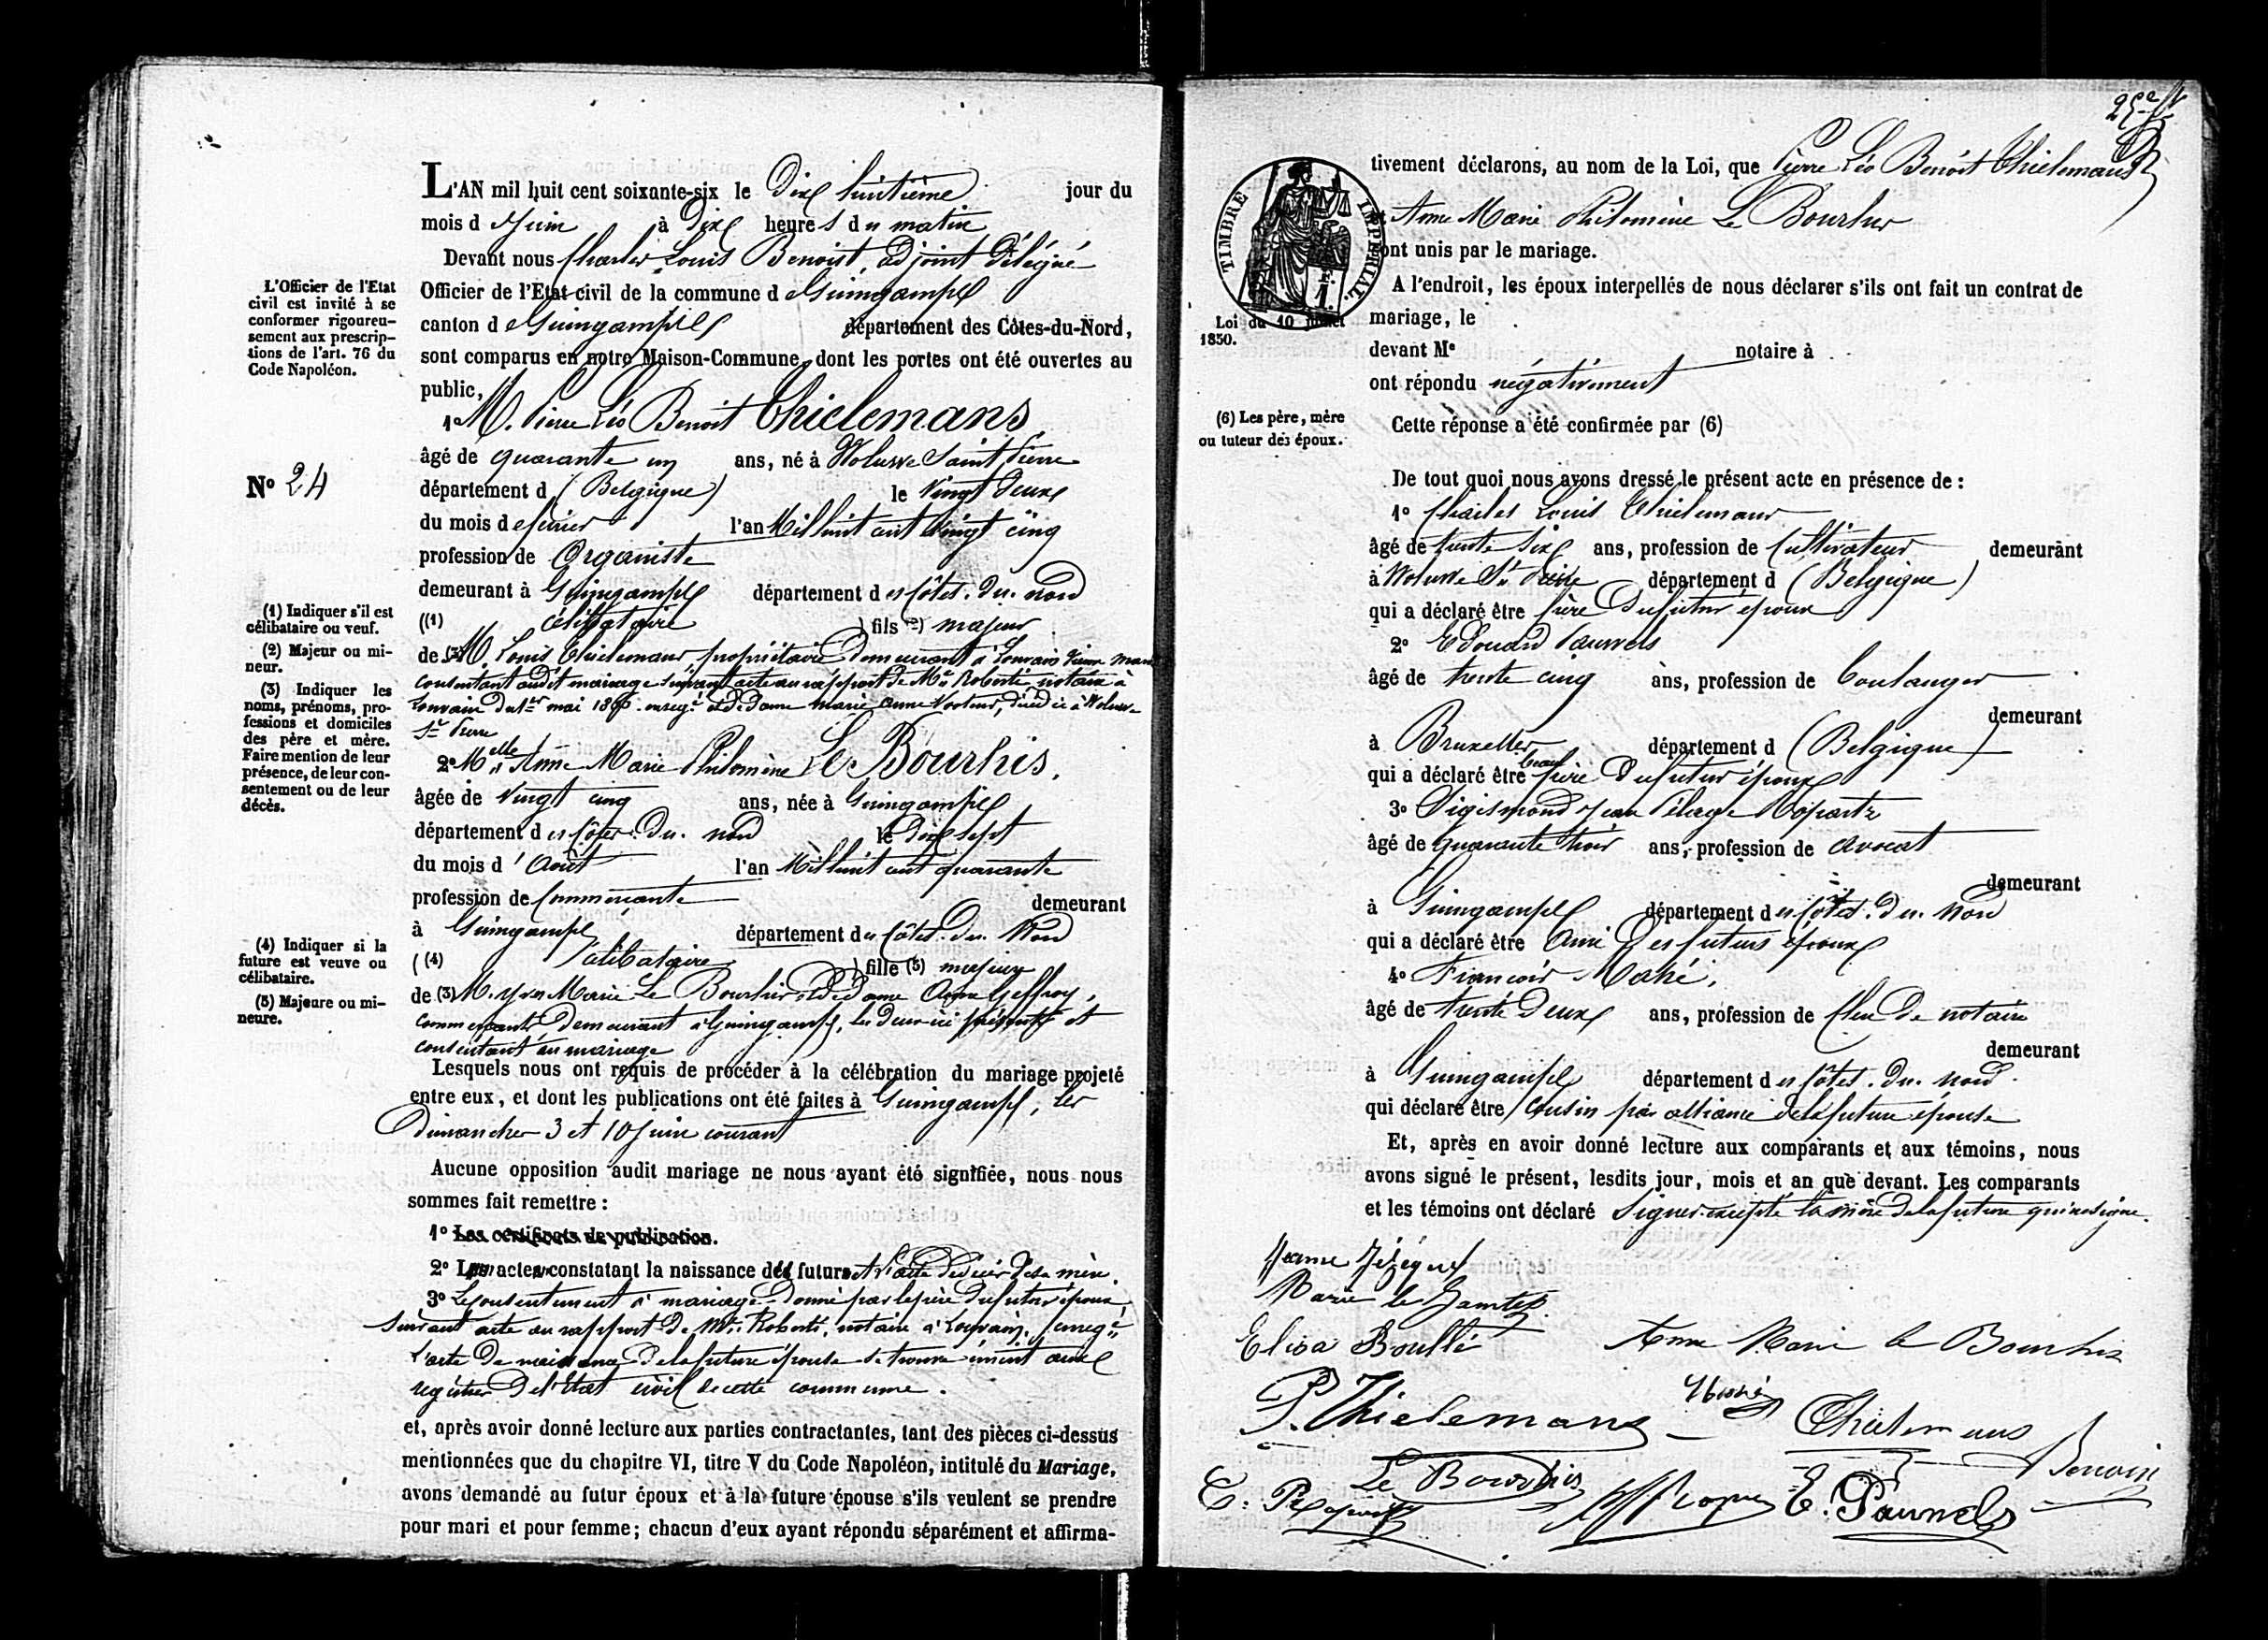 L'AN mil huit cent soixante-six le Dix huitième jour du
mois d e Juin à Dix heures du matin
Devant nous Charles Louis Benoist, adjoint délégué
Officier de l'Etat civil de la commune d e Guingamp
canton d e Guingamp département des Côtes-du-Nord,
sont comparus en notre Maison-Commune, dont les portes ont été ouvertes au
public,
1° M. Pierre Léo Benoit Thielemans
âgé de quarante un ans, né à Woluwe Saint Pierre
département d (Belgique) le vingt deux
du mois de février l'an Mil huit cent vingt cinq
profession de Organiste
demeurant à Guingamp département des Côtes-du-nord
((1) célibataire ) fils (2) majeur
de (3) M. Louis Thielemans, propriétaire demeurant à Louvain
consentant audit mariage suivant acte au rapport de Me Roberti notaire à
Louvain du 1er mai 1866 enregé et de dame Marie Anne décédée à Woluwe
St Pierre
2° Melle Anne Marie Philomène Le Bourhis,
âgée de vingt cinq ans, née à Guingamp
département des Côtes-du-nord le dix sept
du mois d'Août l'an Mil huit cent quarante
profession de Commerçante demeurant
à Guingamp département des Côtes-du-Nord
((4) Célibataire ) fille (5) majeure
de (3) M. Yves Marie Le Bourhis et de dame Anne Geffroy,
commerçants, demeurant à Guingamp, les deux ici présents et
consentant au mariage
Lesquels nous ont requis de procéder à la célébration du mariage projeté
entre eux, et dont les publications ont été faites à Guingamp, les
Dimanches 3 et 10 Juin courant
Aucune opposition audit mariage ne nous ayant été signifiée, nous nous
sommes fait remettre :
1° Les certificats de publication.
2° L actes constatant la naissance du futur et l'acte de décès de sa mère.
3° Le consentement à mariage donné par le père du futur époux,
suivant acte au rapport de Me Roberti, notaire à Louvain, enregé
L'acte de naissance de la future épouse se trouve inscrit aux
registres de l'Etat civil de cette commune.
et, après avoir donné lecture aux parties contractantes, tant des pièces ci-dessus
mentionnées que du chapitre VI, titre V du Code Napoléon, intitulé du Mariage,
avons demandé au futur époux et à la future épouse s'ils veulent se prendre
pour mari et pour femme; chacun d'eux ayant répondu séparément et affirma-
L'Officier de l'Etat
civil est invité à se
conformer rigoureu-
sement aux prescrip-
tions de l'art. 76 du
Code Napoléon.
N° 24
(1) Indiquer s'il est
célibataire ou veuf.
(2) Majeur ou mi-
neur.
(3) Indiquer les
noms, prénoms, pro-
fessions et domiciles
des père et mère.
Faire mention de leur
présence, de leur con-
sentement ou de leur
décès.
(4) Indiquer si la
future est veuve ou
célibataire.
(5) Majeure ou mi-
neure.
tivement déclarons, au nom de la Loi, que Pierre Léo Benoit Thielemans
et Anne Marie Philomène Le Bourhis
sont unis par le mariage.
A l'endroit, les époux interpellés de nous déclarer s'ils ont fait un contrat de
mariage, le
devant Me notaire à
ont répondu négativement
Cette réponse a été confirmée par (6)
De tout quoi nous avons dressé le présent acte en présence de :
1° Charles Louis Thielemans
âgé de trente six ans, profession de Cultivateur demeurant
à Woluwe St Pierre département d (Belgique)
qui a déclaré être frère du futur époux
2° Edouard Pauwels
âgé de trente cinq ans, profession de boulanger
demeurant
à Bruxelles département d (Belgique)
qui a déclaré être beau frère du futur époux
3° Sigismond Jean Pélage Ropartz
âgé de quarante trois ans, profession de avocat
demeurant
à Guingamp département des Côtes-du-Nord
qui a déclaré être Ami des futurs époux
4° François Mahé,
âgé de trente deux ans, profession de Clerc de notaire
demeurant
à Guingamp département des Côtes-du-Nord
qui déclare être Cousin par alliance de la future épouse
Et, après en avoir donné lecture aux comparants et aux témoins, nous
avons signé le présent, lesdits jour, mois et an que devant. Les comparants
et les témoins ont déclaré signer excepté la mère de la future qui ne signe.
TIMBRE IMPERIAL.
Loi du 10 juillet
1850.
(6) Les père, mère
ou tuteur des époux.
Jeanne Jézéquel
Marie le Jamtel
Elisa Boullé
Anne Marie le Bourhis
P. Thielemans
Mahé
Thielemans
Le Bourhis
Benoist
S. Ropartz
E. Pauwels